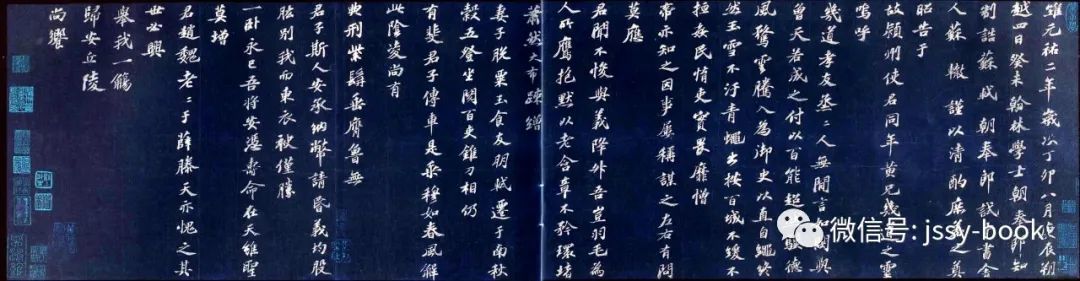 維元祐二年歲次丁卯八月庚辰朔
越四日癸未翰林學士朝奉郎知
制誥蘇軾朝奉郎試中書舍
人蘇轍謹以清酌庶羞之奠
昭告于
故潁州使君同年黃兄幾道之靈
嗚呼
幾道孝友烝烝人無閒言如閔與
曾天若成之付以百能超然驥德
風騖雲騰入為御史以直自繩終
然玉雪不汙青蠅出按百城不緩不
拒姦民惰吏實畏靡憎
帝亦知之因事屢稱謀之左右有問
莫應
君聞不悛與義降升吾豈羽毛為
人所鷹抱默以老含章不矜環堵
蕭然大布疎繒
妻子脫粟玉食友朋我遷于南秋
穀五登坐閱百吏錐刀相仍
有斐君子傳車是乘穆如春風解
此陰凌尚有
典刑紫髯垂膺魯無
君子斯人安承納幣請昏義均股
肱別我而東衣袂僅勝
一臥永已吾將安憑壽命在天雖聖
莫增
君趙魏老老于薛滕天亦愧之其
世必興
舉我一觴
歸安丘陵
尚饗
微信号: jssy-book